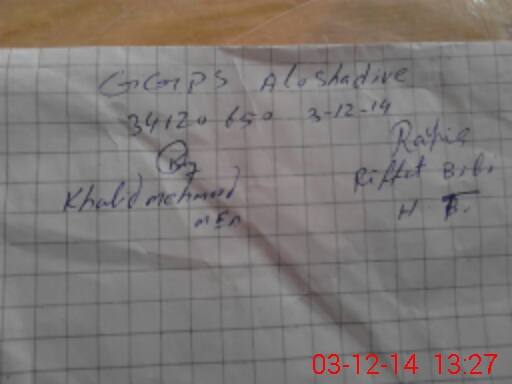 GGPS Aloshadive
34120 650 3-12-14
Rafia
Khalid mehmood Riffat Bibi
MEA H. B.
03-12-14 13:27